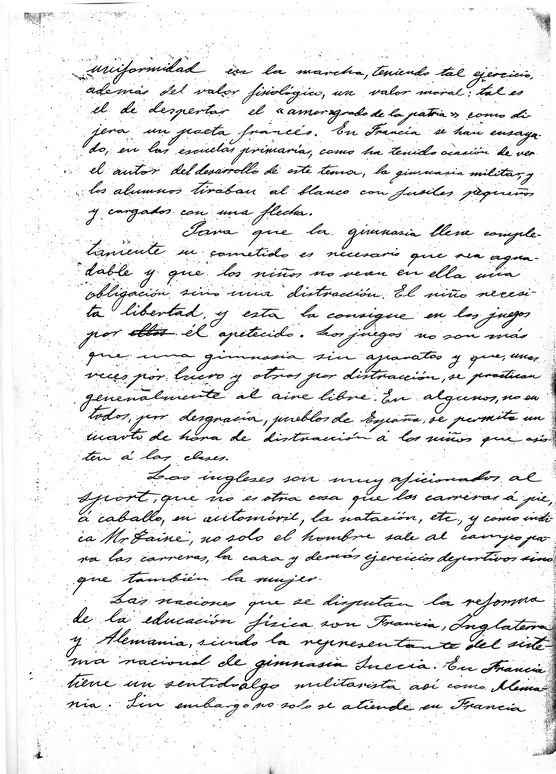 uniformidad en la marcha, teniendo tal ejercicio,
además del valor fisiológico, un valor moral: tal es
el de despertar el "amor sagrado de la patria" como di-
jera un poeta francés. En Francia se han ensaya-
do, en las escuelas primarias, como ha tenido ocasión de ver
el autor del desarrollo de este tema, la gimnasia militar, y
los alumnos tiraban al blanco con fusiles pequeños
y cargados con una flecha.
Para que la gimnasia llene comple-
tamente su cometido es necesario que sea agra-
dable y que los niños no vean en ella una
obligación sino una distracción. El niño necesi-
ta libertad, y esta la consigue en los juegos
por ellos él apetecido. Los juegos no son más
que una gimnasia sin aparatos y que, unas
veces por lucro y otras por distracción, se practican
generalmente al aire libre. En algunos, no en
todos, por desgracia, pueblos de España, se permite un
cuarto de hora de distracción á los niños que asis-
ten á las clases.
Los ingleses son muy aficionados al
sport, que no es otra cosa que las carreras á pie,
á caballo, en automóvil, la natación, etc, y como indi-
ca Mr. Faine, no solo el hombre sale al campo pa-
ra las carreras, la caza y demás ejercicios deportivos sino
que también la mujer.
Las naciones que se disputan la reforma
de la educación física son Francia, Inglaterra
y Alemania, siendo la representante del siste-
ma nacional de gimnasia Suecia. En Francia
tiene un sentido algo militarista así como Alema-
nia. Sin embargo no solo se atiende en Francia